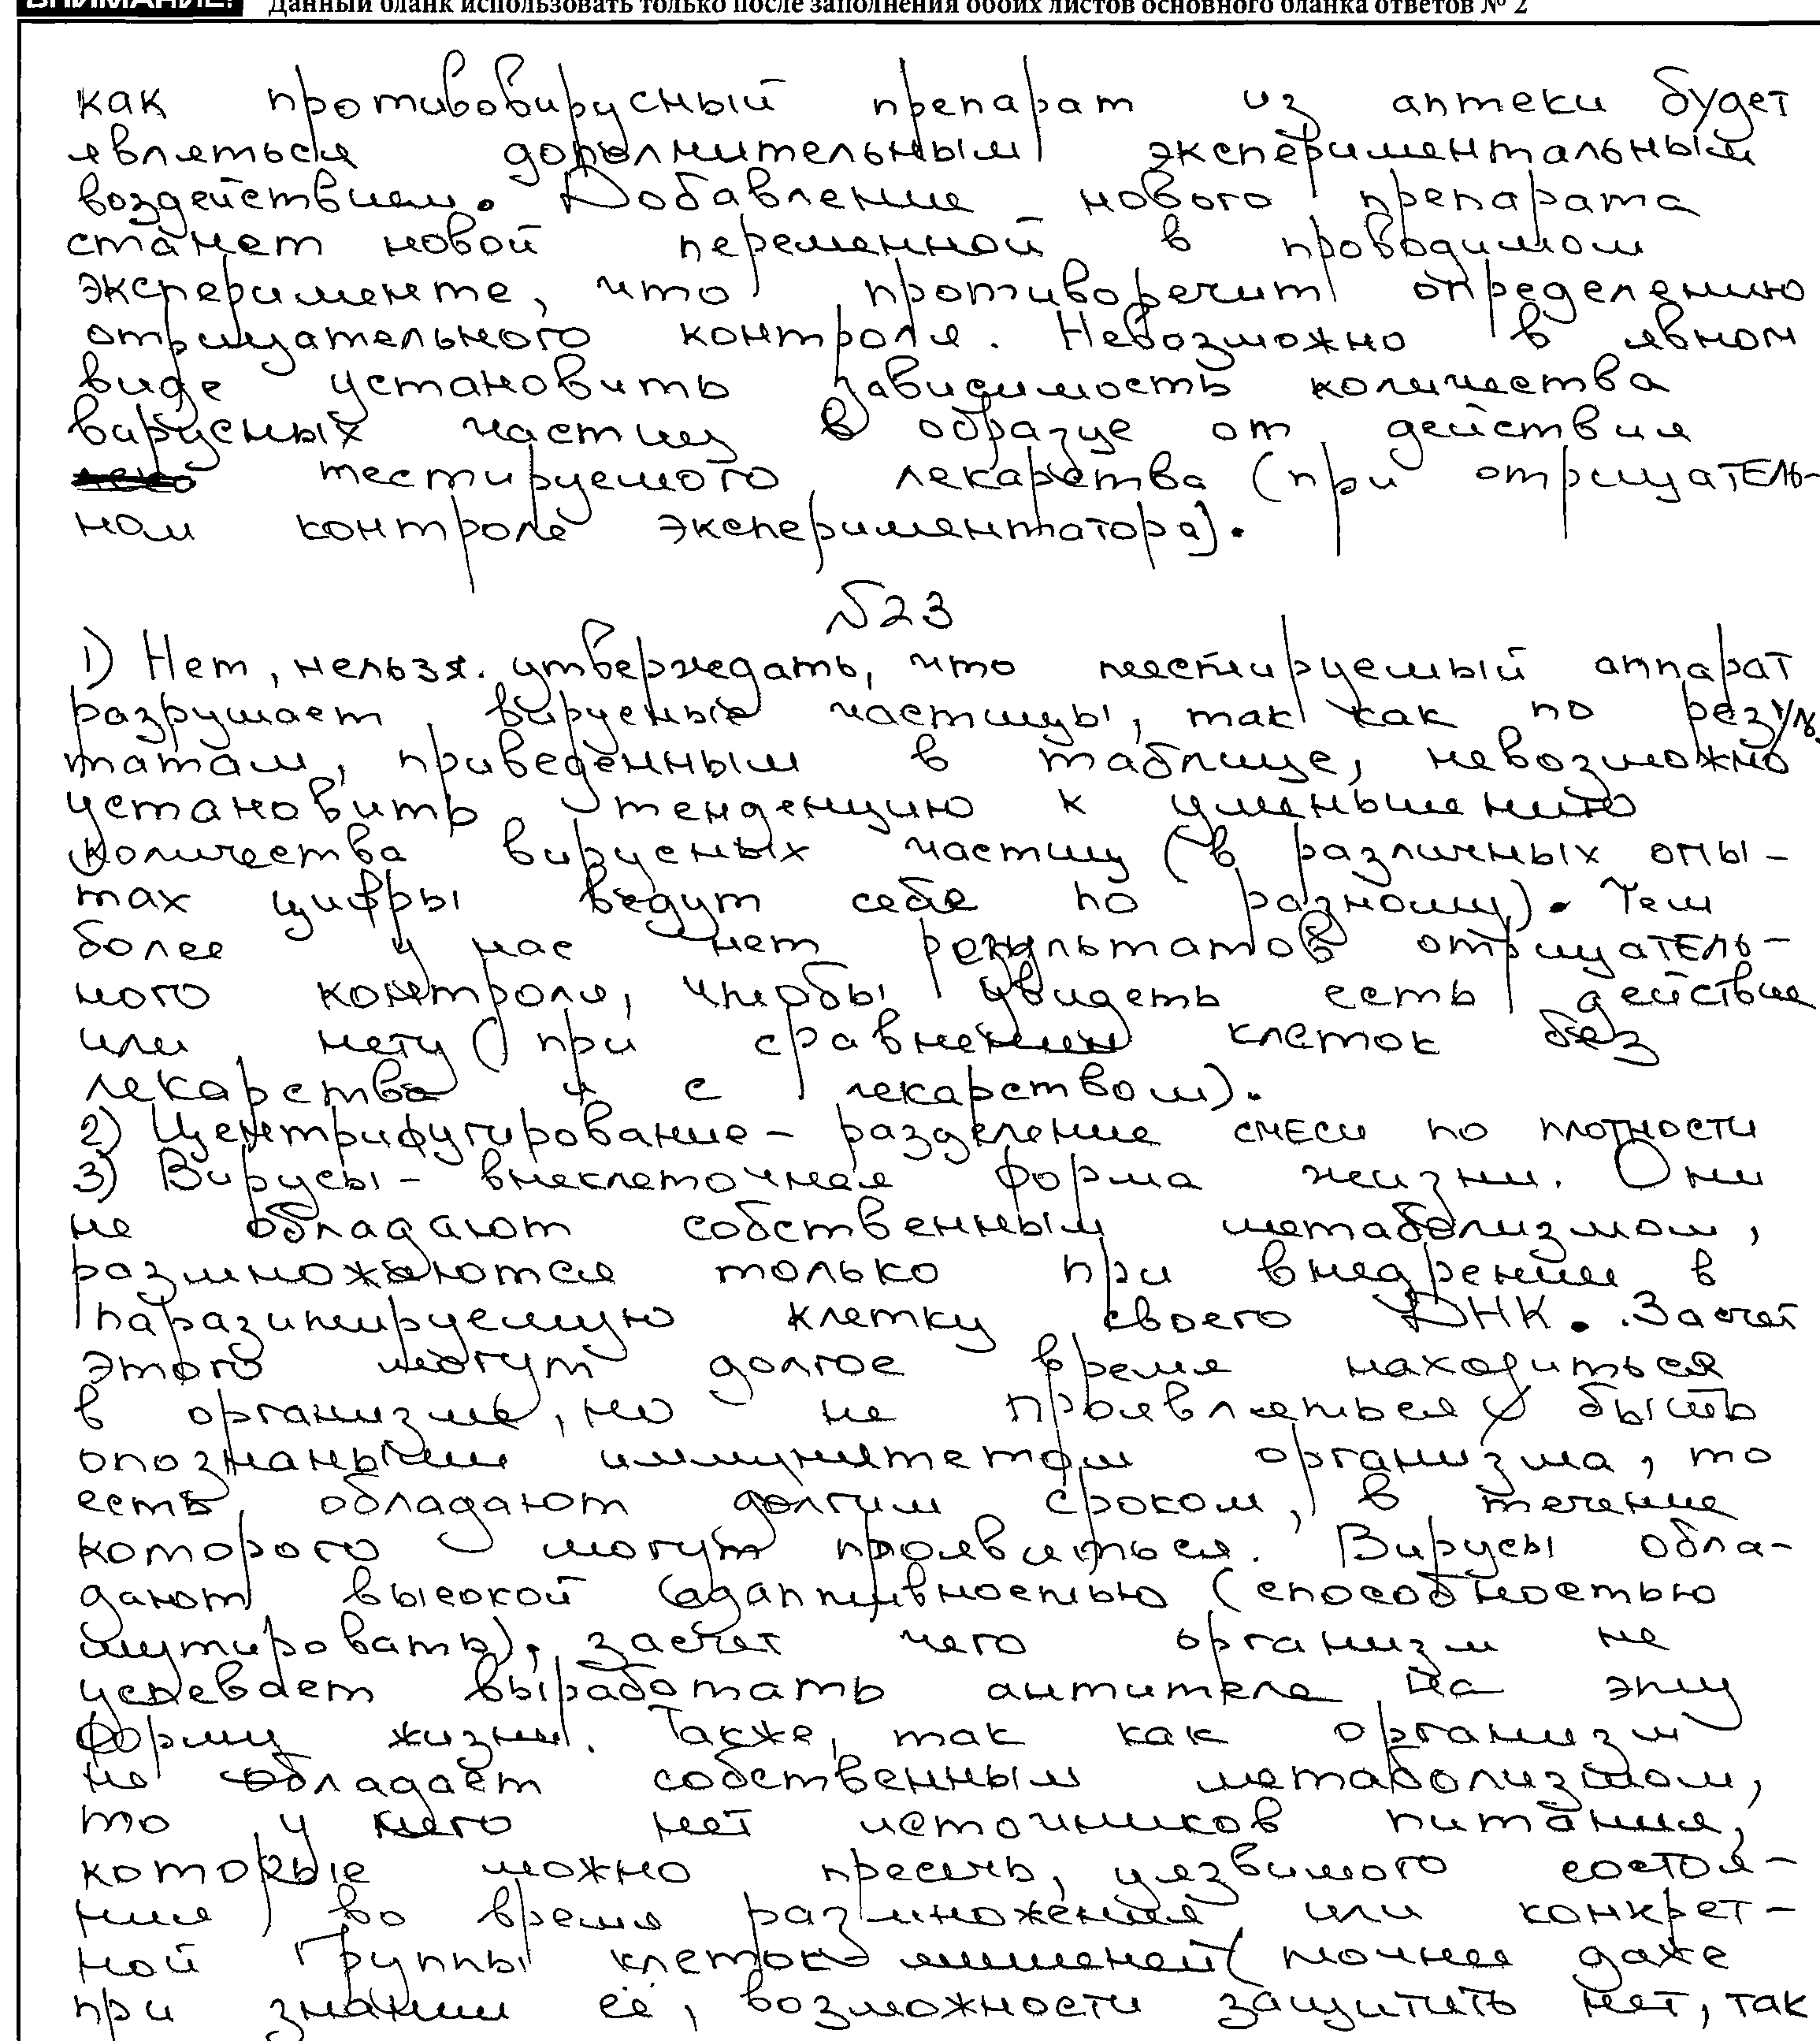 ВНИМАНИЕ! Данный бланк использовать только после заполнения обоих листов основного бланка ответов № 2
как противовирусный препарат из аптеки будет
являеться дополнительным экспериментальным
воздействием. Добавление нового препарата
станет новой переменной в проводимом
эксперименте, что противоречит определению
отрицательного контроля. Невозможно в явном
виде установить зависимость количества
вирусных частиц в образце от действия
тестируемого лекарства (при отрицатель-
ном контроле экспериментатора).
№23
1) Нет, нельзя. утверждать, что тестируемый аппарат
разрушает вирусные частицы, так как по резуль
татам, приведённым в таблице, невозможно
установить тенденцию к уменьшению
количества вирусных частиц (в различных опы-
тах цифры ведут себя по разному). Тем
более у нас нет результатов отрицатель-
ного контроля, чтобы увидеть есть действие
или нету (при сравнении клеток без
лекарства и с лекарством).
2) Центрифугирование - разделение смеси по плотности
3) Вирусы - внеклеточная форма жизни. Они
не обладают собственным метаболизмом,
размножаются только при внедрении в
паразитируемую клетку своего ДНК. Засчёт
этого могут долгое время находиться
в организме, но не проявляться и быть
опознаными иммунитетом организма, то
есть обладают долгим сроком, в течение
которого могут проявиться. Вирусы обла-
дают высокой адаптивностью (способностью
мутировать), засчёт чего организм не
успевает выработать антитела на эту
форму жизни. Также, так как организм
не обладает собственным метаболизмом,
то у него нет источников питания,
которые можно пресечь, уязвимого состоя-
ния во время размножения или конкрет-
ной группы клеток мишеней (точнее даже
при знании её, возможности защитить нет, так